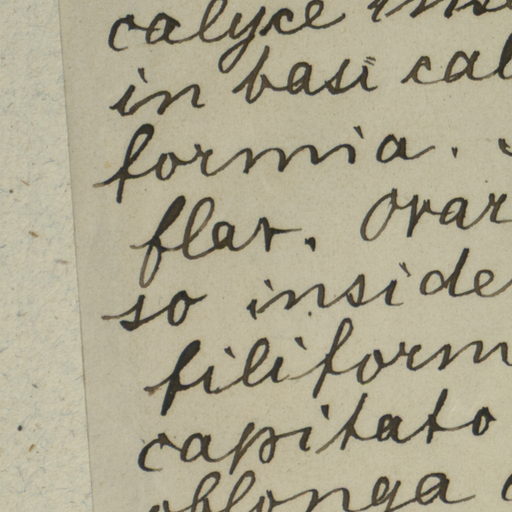 calyce ins
in basi cal
formia.
flav. Ovar
so inside
filiform
capitato
oblonga